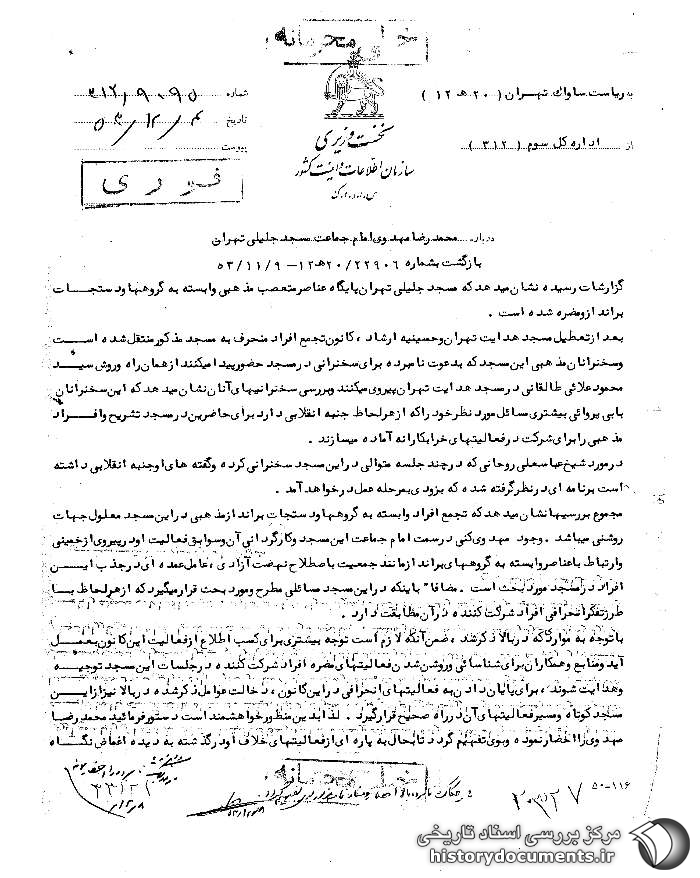 خیلی محرمانه
به ریاست ساواک تهران (۲۰ هـ ۱۲)
از اداره کل سوم (۳۱۲)
نخست وزیری
سازمان اطلاعات و امنیت کشور
س.ا.و.ا.ک
شماره ۳۱۲/۹۰۹۵
تاریخ ۵۳/۱۲/۴
پیوست
فوری
درباره محمد رضا مهدوی امام جماعت مسجد جلیلی تهران
بازگشت بشماره ۲۲۹۰۶/۲۰هـ۱۲ - ۵۳/۱۱/۹
گزارشات رسیده نشان میدهد که مسجد جلیلی تهران پایگاه عناصر متعصب مذهبی وابسته به گروهها و دستجات
برانداز و مضره شده است .
بعد از تعطیل مسجد هدایت تهران و حسینیه ارشاد ، کانون تجمع افراد منحرف به مسجد مذکور منتقل شده است
و سخنرانان مذهبی این مسجد که بدعوت نامبرده برای سخنرانی در مسجد حضور پیدا میکنند از همان راه و روش سید
محمود علائی طالقانی در مسجد هدایت تهران پیروی میکنند و بررسی سخنرانیهای آنان نشان میدهد که این سخنرانان
با بی پروائی بیشتری مسائل مورد نظر خود را که از هر لحاظ جنبه انقلابی دارد برای حاضرین در مسجد تشریح و افراد
مذهبی را برای شرکت در فعالیتهای خرابکارانه آماده میسازند .
در مورد شیخ عباسعلی روحانی که در چند جلسه متوالی در این مسجد سخنرانی کرده و گفته های او جنبه انقلابی داشته
است برنامه ای در نظر گرفته شده که بزودی بمرحله عمل در خواهد آمد .
مجموع بررسیها نشان میدهد که تجمع افراد وابسته به گروهها و دستجات برانداز مذهبی در این مسجد معلول جهات
روشنی میباشد . وجود مهدوی کنی در سمت امام جماعت این مسجد و کارگردانی آن و سوابق فعالیت او در پیروی از خمینی
و ارتباط با عناصر وابسته به گروههای برانداز مانند جمعیت باصطلاح نهضت آزادی ، عامل عمده ای در جذب این
افراد در مسجد مورد بحث است . مضافا" باینکه در این مسجد مسائلی مطرح و مورد بحث قرار میگیرد که از هر لحاظ با
طرز تفکر انحرافی افراد شرکت کننده در آن مطابقت دارد .
با توجه به مواردیکه در بالا ذکر شد ، ضمن آنکه لازم است توجه بیشتری برای کسب اطلاع از فعالیت این کانون بعمل
آید و منابع و همکاران برای شناسائی و روشن شدن فعالیتهای مضره افراد شرکت کننده در جلسات این مسجد توجیه
و هدایت شوند ، برای پایان دادن به فعالیتهای انحرافی در این کانون ، دخالت عوامل ذکر شده در بالا نیز از این
مساجد کوتاه و مسیر فعالیتهای آن در راه صحیح قرار گیرد . لذا بدین منظور خواهشمند است دستور فرمائید محمد رضا
مهدوی را احضار نموده و بوی تفهیم گردد تا بحال به پاره ای از فعالیتهای خلاف او در گذشته به دیده اغماض نگاه
خیلی محرمانه
۵۰-۱۱۶
مرکز بررسی اسناد تاریخی
historydocuments.ir